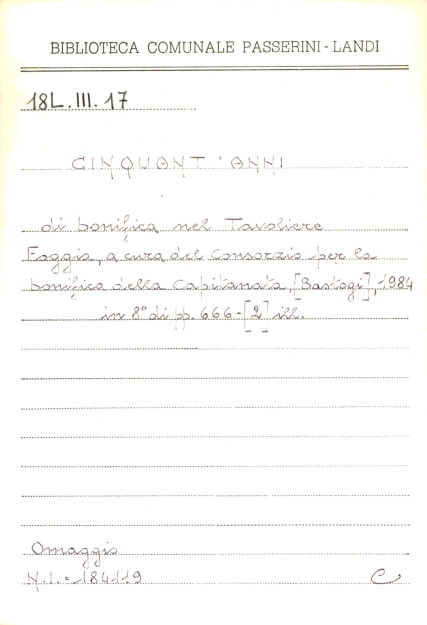 BIBLIOTECA COMUNALE PASSERINI-LANDI
18L.III.17
CINQUANT'ANNI
di bonifica nel Tavoliere
Foggia, a cura del Consorzio per la
bonifica della Capitanata, [Bastogi], 1984
in 8° di pp. 666-[2] ill.
Omaggio
N.I. = 184119
C